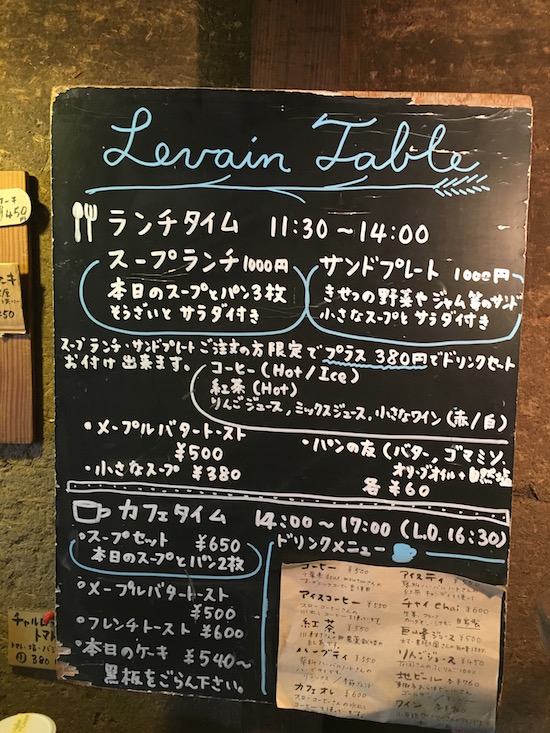 Levain Table
ランチタイム 11:30〜14:00
スープランチ 1000円
本日のスープとパン3枚
そうざいと サラダ付き
サンドプレート 1000円
きせつの野菜や ジャム等のサンド
小さなスープと サラダ付き
スープランチ・サンドプレート ご注文の方限定で プラス 380円でドリンクセット
お付け出来ます。
コーヒー (Hot/Ice)
紅茶 (Hot)
りんごジュース, ミックスジュース, 小さなワイン (赤/白)
・メープルバタートースト
¥500
・小さなスープ ¥380
・パンの友 (バター, ゴマミソ,
オリーブオイル+自然塩
各 ¥60
カフェタイム 14:00〜17:00 (L.O. 16:30)
・スープセット ¥650
本日のスープとパン2枚
・メープルバタートースト
¥500
・フレンチトースト ¥600
・本日のケーキ ¥540〜
黒板をごらん下さい。
ドリンクメニュー
コーヒー ¥500
アイスコーヒー ¥550
紅茶 ¥550
ハーブティ ¥550
カフェオレ ¥600
アイスティ
チャイ chai ¥600
ジュース ¥500
りんごジュース ¥450
地ビール
ワイン
450円
380